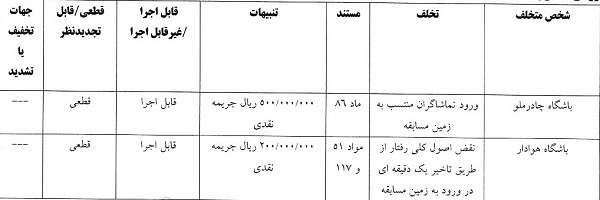 شخص متخلف | تخلف | مستند | تنبیهات | قابل اجرا /غیرقابل اجرا | قطعی/قابل تجدیدنظر | جهات تخفیف یا تشدید
باشگاه چادرملو | ورود تماشاگران منتسب به زمین مسابقه | ماد ۸۶ | ۵۰۰/۰۰۰/۰۰۰ ریال جریمه نقدی | قابل اجرا | قطعی | ---
باشگاه هوادار | نقض اصول کلی رفتار از طریق تاخیر یک دقیقه ای در ورود به زمین مسابقه | مواد ۵۱ و ۱۱۷ | ۲۰۰/۰۰۰/۰۰۰ ریال جریمه نقدی | قابل اجرا | قطعی | ---